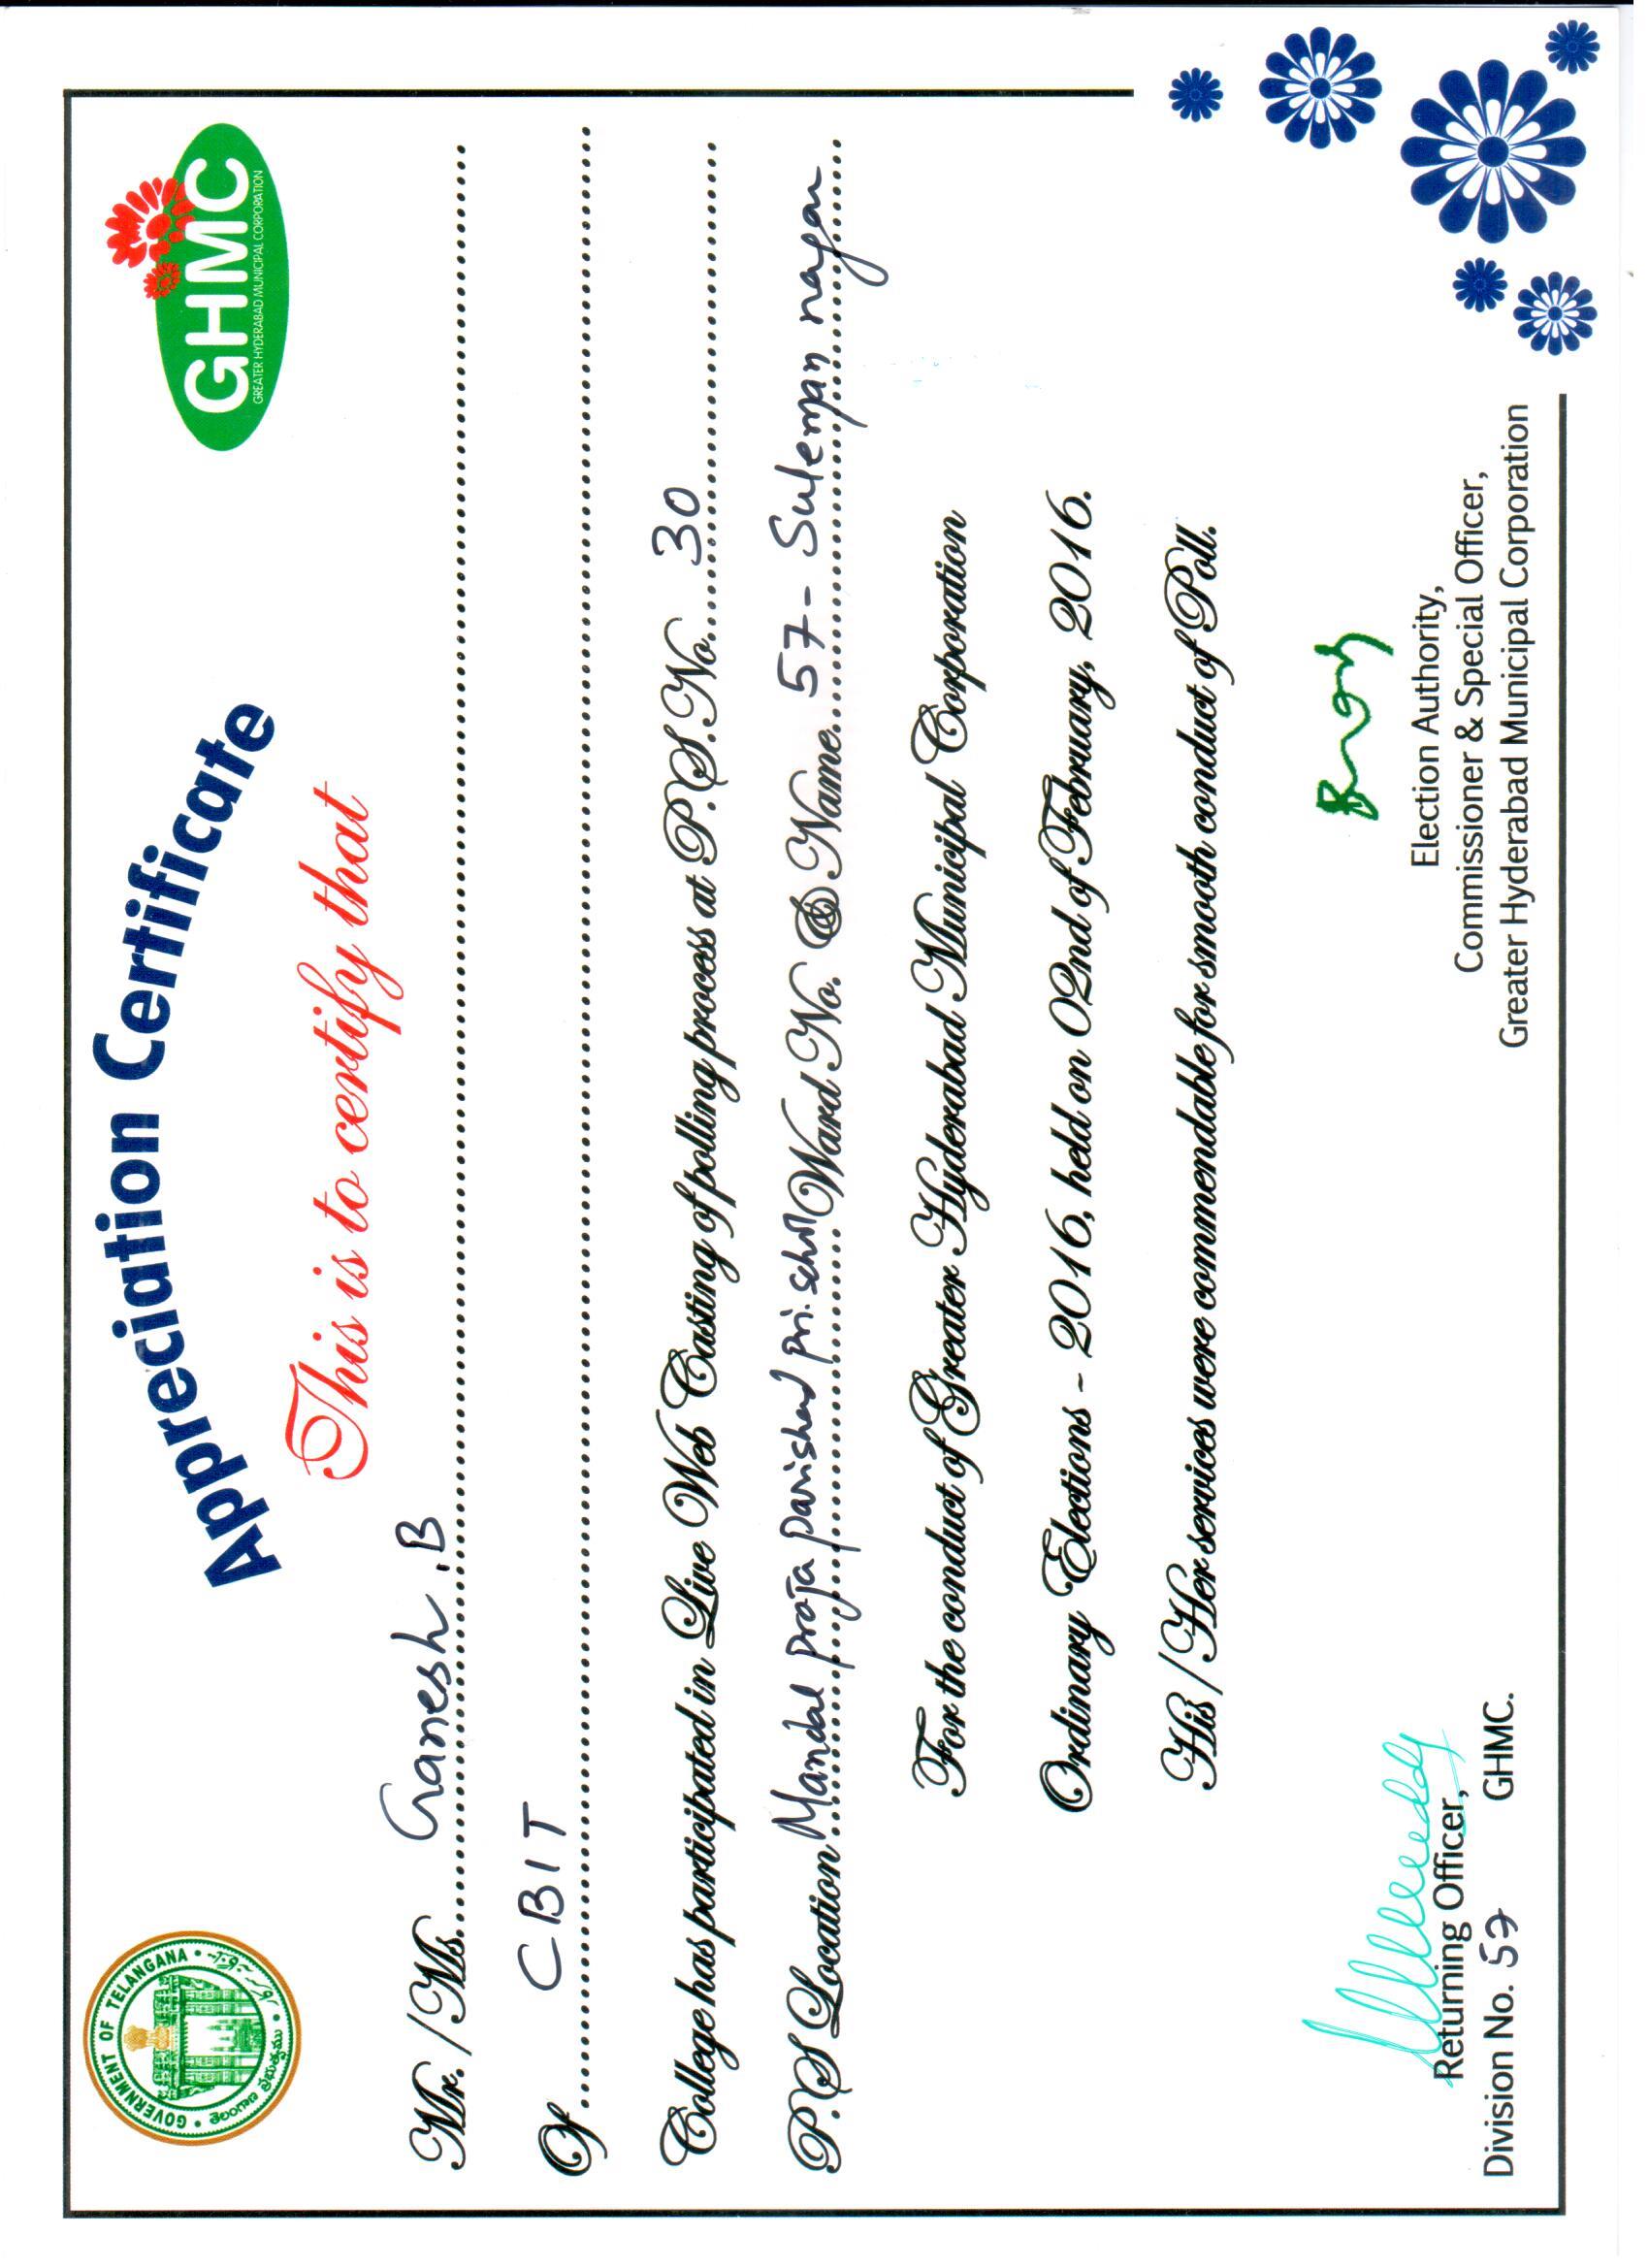 GOVERNMENT OF TELANGANA
GHMC
GREATER HYDERABAD MUNICIPAL CORPORATION
Appreciation Certificate
This is to certify that
Mr. / Ms. Ganesh .B
Of CBIT
College has participated in Live Web Casting of polling process at P.S.No. 30
P.S Location Mandal praja parishad pri. school Ward No. & Name 57 - Suleman nagar
For the conduct of Greater Hyderabad Municipal Corporation
Ordinary Elections - 2016, held on 02nd of February, 2016.
His / Her services were commendable for smooth conduct of Poll.
Returning Officer,
Division No. 57 GHMC.
Election Authority,
Commissioner & Special Officer,
Greater Hyderabad Municipal Corporation